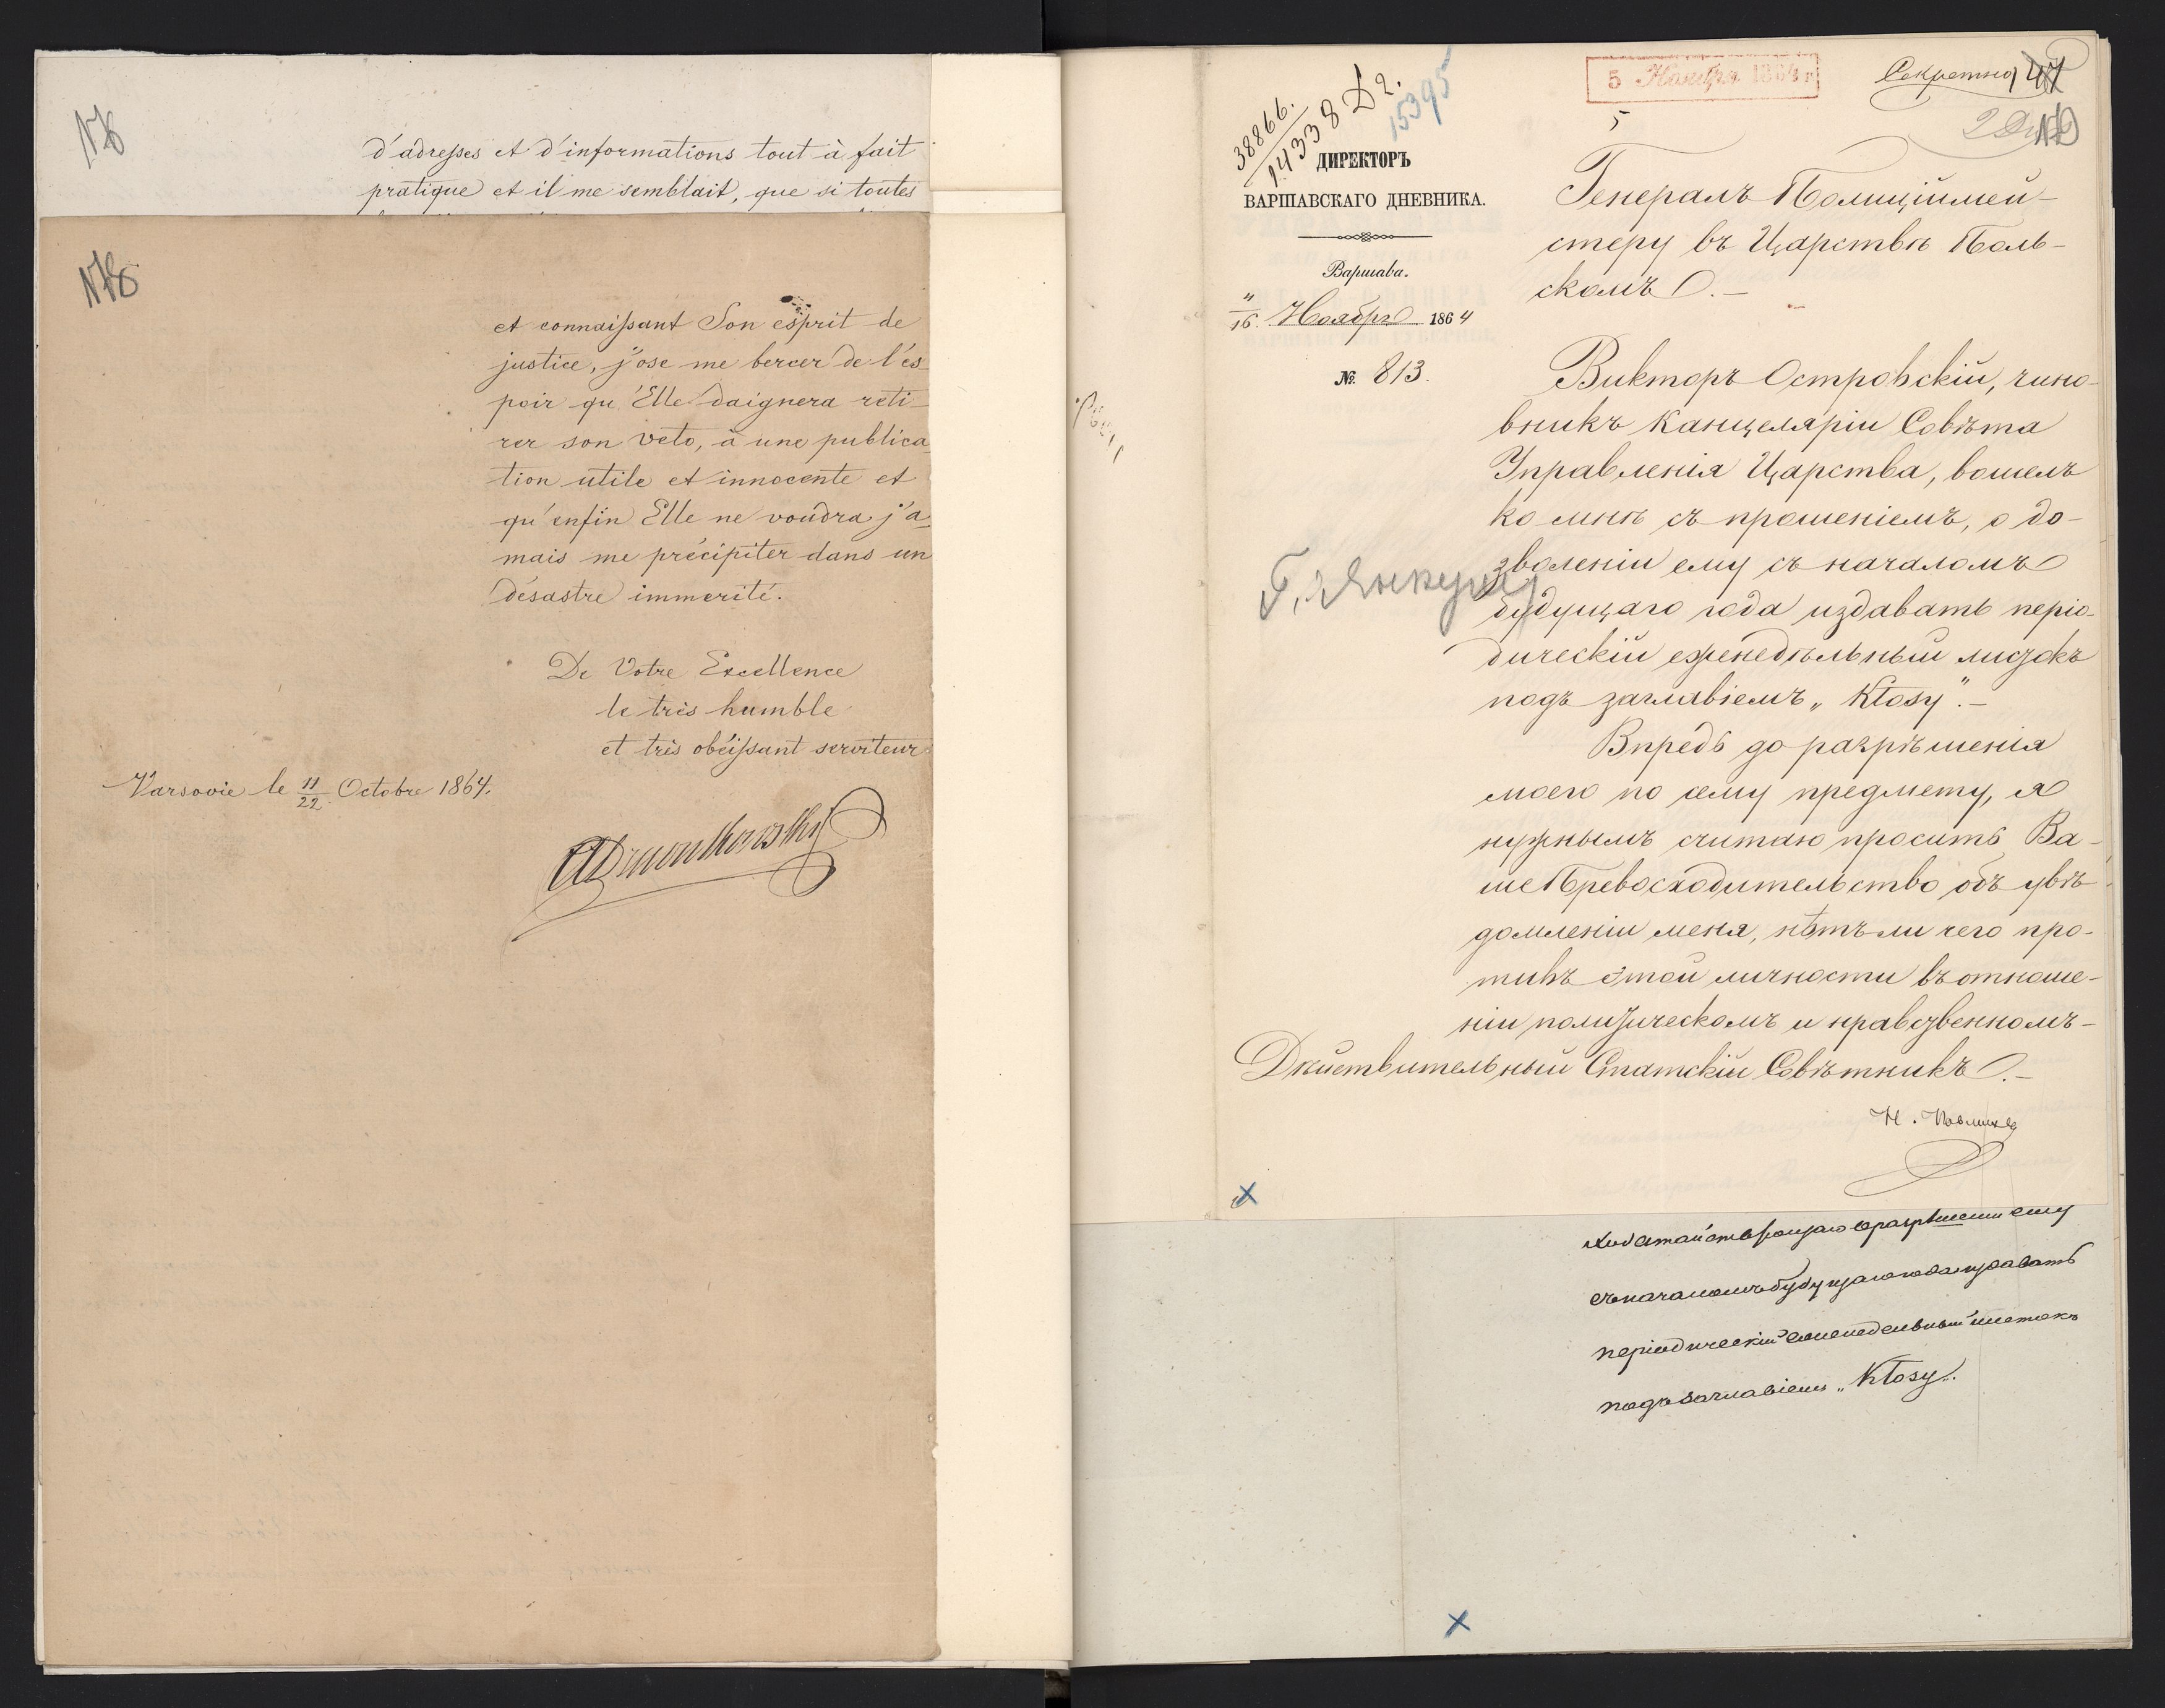 d'adresses et d'informations tout à fait
pratique et il me semblait, que si toutes
et connaissant Son esprit de
justice, j'ose me bercer de l'es-
poir qu'Elle daignera reti-
rer son veto, à une publica
tion utile et innocente et
qu'enfin Elle ne voudra ja-
mais me précipiter dans un
désastre immerité.
De Votre Excellence
le très humble
et très obéissant serviteur
Varsovie le 11/22 Octobre 1864.
38866.
14338 Д2.
15395
5 Ноября 1864 г
Секретно
ДИРЕКТОРЪ
ВАРШАВСКАГО ДНЕВНИКА.
Варшава.
4/16. Ноября 1864
№ 813.
Генералъ Полиціймей-
стеру въ Царствѣ Поль-
скомъ.-
Викторъ Островскій, чино-
вникъ Канцеляріи Совѣта
Управленія Царства, вошелъ
ко мнѣ съ прошеніемъ, о до-
зволеніи ему съ началомъ
будущаго года издавать періо-
дическій еженедѣльный листокъ
подъ заглавіемъ „Kłosy".-
Впредь до разрѣшенія
моего по сему предмету, я
нужнымъ считаю просить Ва-
ше Превосходительство объ увѣ-
домленіи меня, нѣтъ ли чего про-
тивъ этой личности въ отноше-
ніи политическомъ и нравственномъ-
Дѣйствительный Статскій Совѣтникъ.-
Н. Павлищев
ходатайствующаго о разрѣшеніи ему
съ началомъ будущаго года издавать
періодическій еженедельный листокъ
подъ заглавіемъ „Kłosy".